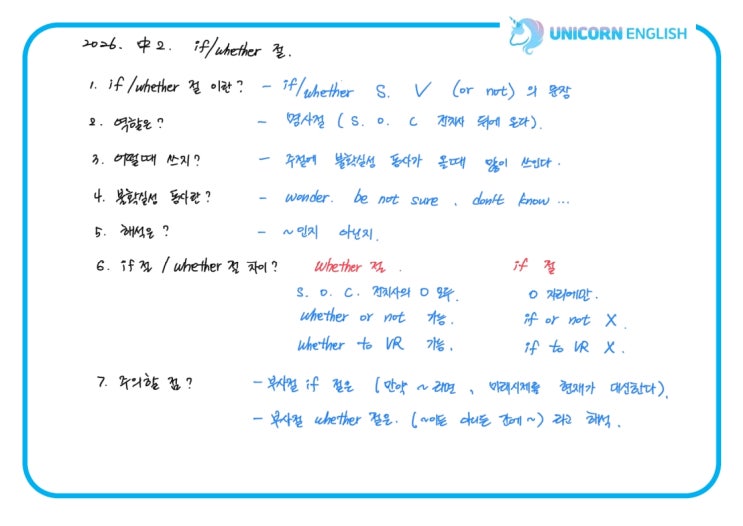 UNICORN ENGLISH
2026. 中2. if/whether 절.
1. if/whether 절 이란? - if/whether S. V (or not) 의 문장
2. 역할은? - 명사절 (S. O. C 전치사 뒤에 온다).
3. 어떨때 쓰지? - 주절에 불확실성 동사가 올때 많이 쓰인다.
4. 불확실성 동사란? - wonder. be not sure. don't know ...
5. 해석은? - ~인지 아닌지.
6. if절 / whether 절 차이? whether 절. if 절
S. O. C. 전치사의 O 모두. O 자리에만.
whether or not 가능. if or not X.
whether to VR 가능. if to VR X.
7. 주의할 점? - 부사절 if 절은 (만약 ~라면, 미래시제를 현재가 대신한다).
- 부사절 whether 절은. (~이든 아니든 간에~) 라고 해석.